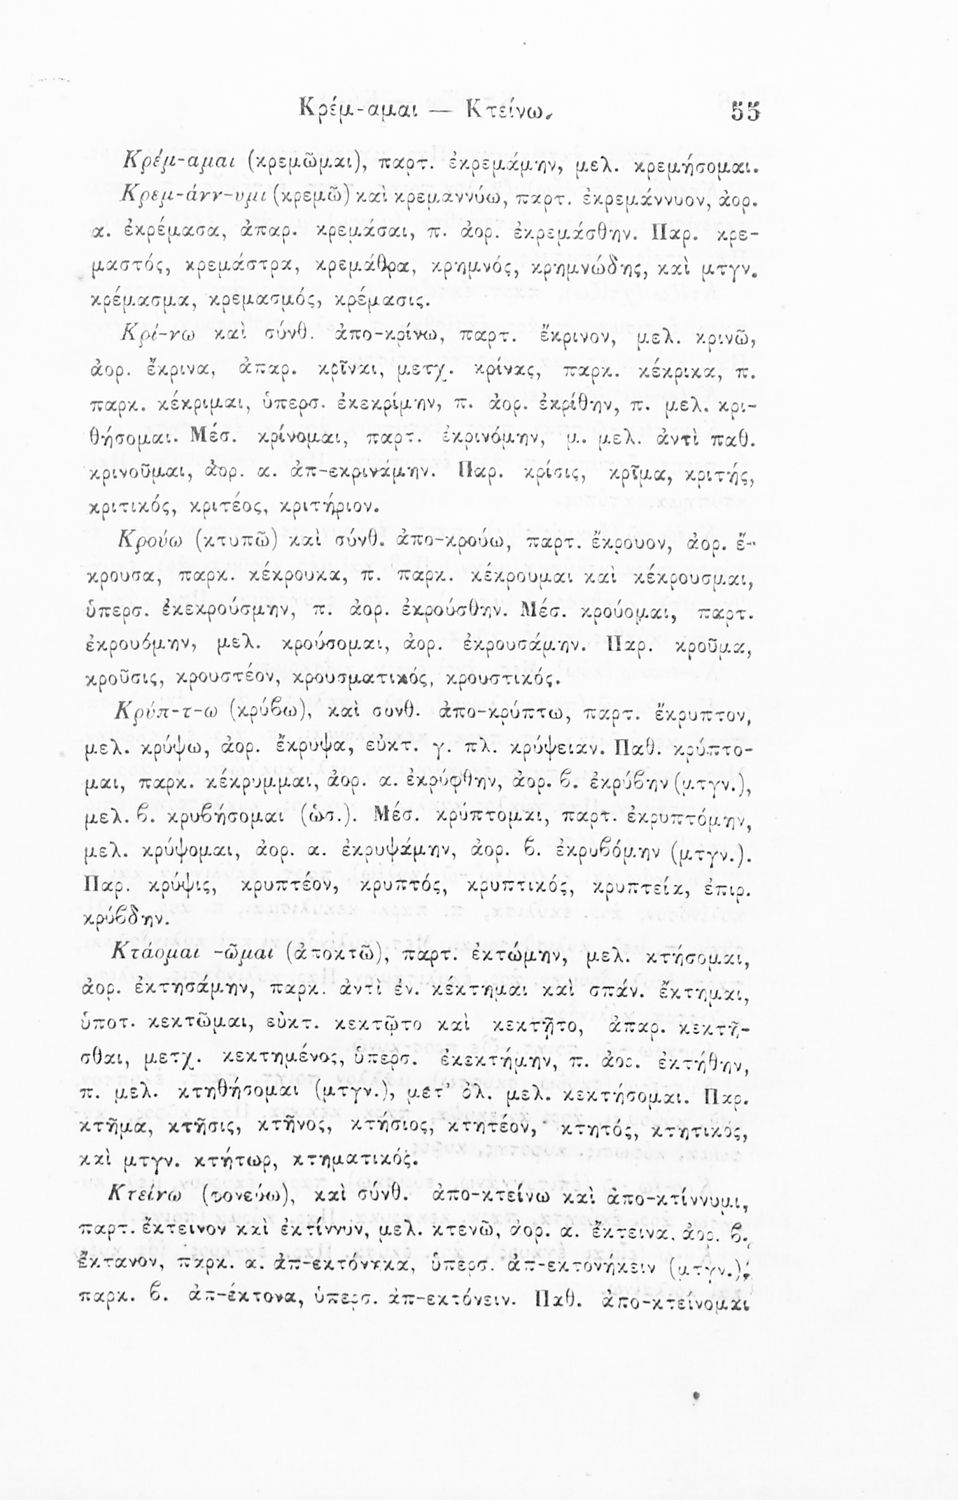 Κρέμ-αμαι — Κτείνω. 55
Κρέμ-αμαι (κρεμῶμαι), παρτ. ἐκρεμάμην, μελ. κρεμήσομαι.
Κρεμ-άνν-υμι (κρεμῶ) καὶ κρεμαννύω, παρτ. ἐκρεμάννυον, ἀορ.
α. ἐκρέμασα, ἀπαρ. κρεμάσαι, π. ἀορ. ἐκρεμάσθην. Παρ. κρε-
μαστός, κρεμάστρα, κρεμάθρα, κρημνός, κρημνώδης, καὶ μτγν.
κρέμασμα, κρεμασμός, κρέμασις.
Κρί-νω καὶ σύνθ. ἀπο-κρίνω, παρτ. ἔκρινον, μελ. κρινῶ,
ἀορ. ἔκρινα, ἀπαρ. κρῖναι, μετχ. κρίνας, παρκ. κέκρικα, π.
παρκ. κέκριμαι, ὑπερσ. ἐκεκρίμην, π. ἀορ. ἐκρίθην, π. μελ. κρι-
θήσομαι. Μέσ. κρίνομαι, παρτ. ἐκρινόμην, μ. μελ. ἀντὶ παθ.
κρινοῦμαι, ἀορ. α. ἀπ-εκρινάμην. Παρ. κρίσις, κρῖμα, κριτής,
κριτικός, κριτέος, κριτήριον.
Κρούω (κτυπῶ) καὶ σύνθ. ἀπο-κρούω, παρτ. ἔκρουον, ἀορ. ἔ-
κρουσα, παρκ. κέκρουκα, π. παρκ. κέκρουμαι καὶ κέκρουσμαι,
ὑπερσ. ἐκεκρούσμην, π. ἀορ. ἐκρούσθην. Μέσ. κρούομαι, παρτ.
ἐκρουόμην, μελ. κρούσομαι, ἀορ. ἐκρουσάμην. Παρ. κροῦμα,
κροῦσις, κρουστέον, κρουσματικός, κρουστικός.
Κρύπ-τ-ω (κρύβω), καὶ συνθ. ἀπο-κρύπτω, παρτ. ἔκρυπτον,
μελ. κρύψω, ἀορ. ἔκρυψα, εὐκτ. γ. πλ. κρύψειαν. Παθ. κρύπτο-
μαι, παρκ. κέκρυμμαι, ἀορ. α. ἐκρύφθην, ἀορ. β. ἐκρύβην (μτγν.),
μελ. β. κρυβήσομαι (ὡσ.). Μέσ. κρύπτομαι, παρτ. ἐκρυπτόμην,
μελ. κρύψομαι, ἀορ. α. ἐκρυψάμην, ἀορ. β. ἐκρυβόμην (μτγν.).
Παρ. κρύψις, κρυπτέον, κρυπτός, κρυπτικός, κρυπτεία, ἐπιρ.
κρύβδην.
Κτάομαι -ῶμαι (ἀποκτῶ), παρτ. ἐκτώμην, μελ. κτήσομαι,
ἀορ. ἐκτησάμην, παρκ. ἀντὶ ἐν. κέκτημαι καὶ σπάν. ἔκτημαι,
ὑποτ. κεκτῶμαι, εὐκτ. κεκτῷτο καὶ κεκτῇτο, ἀπαρ. κεκτῆ-
σθαι, μετχ. κεκτημένος, ὑπερσ. ἐκεκτήμην, π. ἀορ. ἐκτήθην,
π. μελ. κτηθήσομαι (μτγν.), μετ' ὀλ. μελ. κεκτήσομαι. Παρ.
κτῆμα, κτῆσις, κτῆνος, κτήσιος, κτητέον, κτητός, κτητικός,
καὶ μτγν. κτήτωρ, κτηματικός.
Κτείνω (φονεύω), καὶ σύνθ. ἀπο-κτείνω καὶ ἀπο-κτίννυμι,
παρτ. ἔκτεινον καὶ ἐκτίννυν, μελ. κτενῶ, ἀορ. α. ἔκτεινα, ἀορ. β.
ἔκτανον, παρκ. α. ἀπ-εκτόνηκα, ὑπερσ. ἀπ-εκτονήκειν (μτγν.),
παρκ. β. ἀπ-έκτονα, ὑπερσ. ἀπ-εκτόνειν. Παθ. ἀπο-κτείνομαι